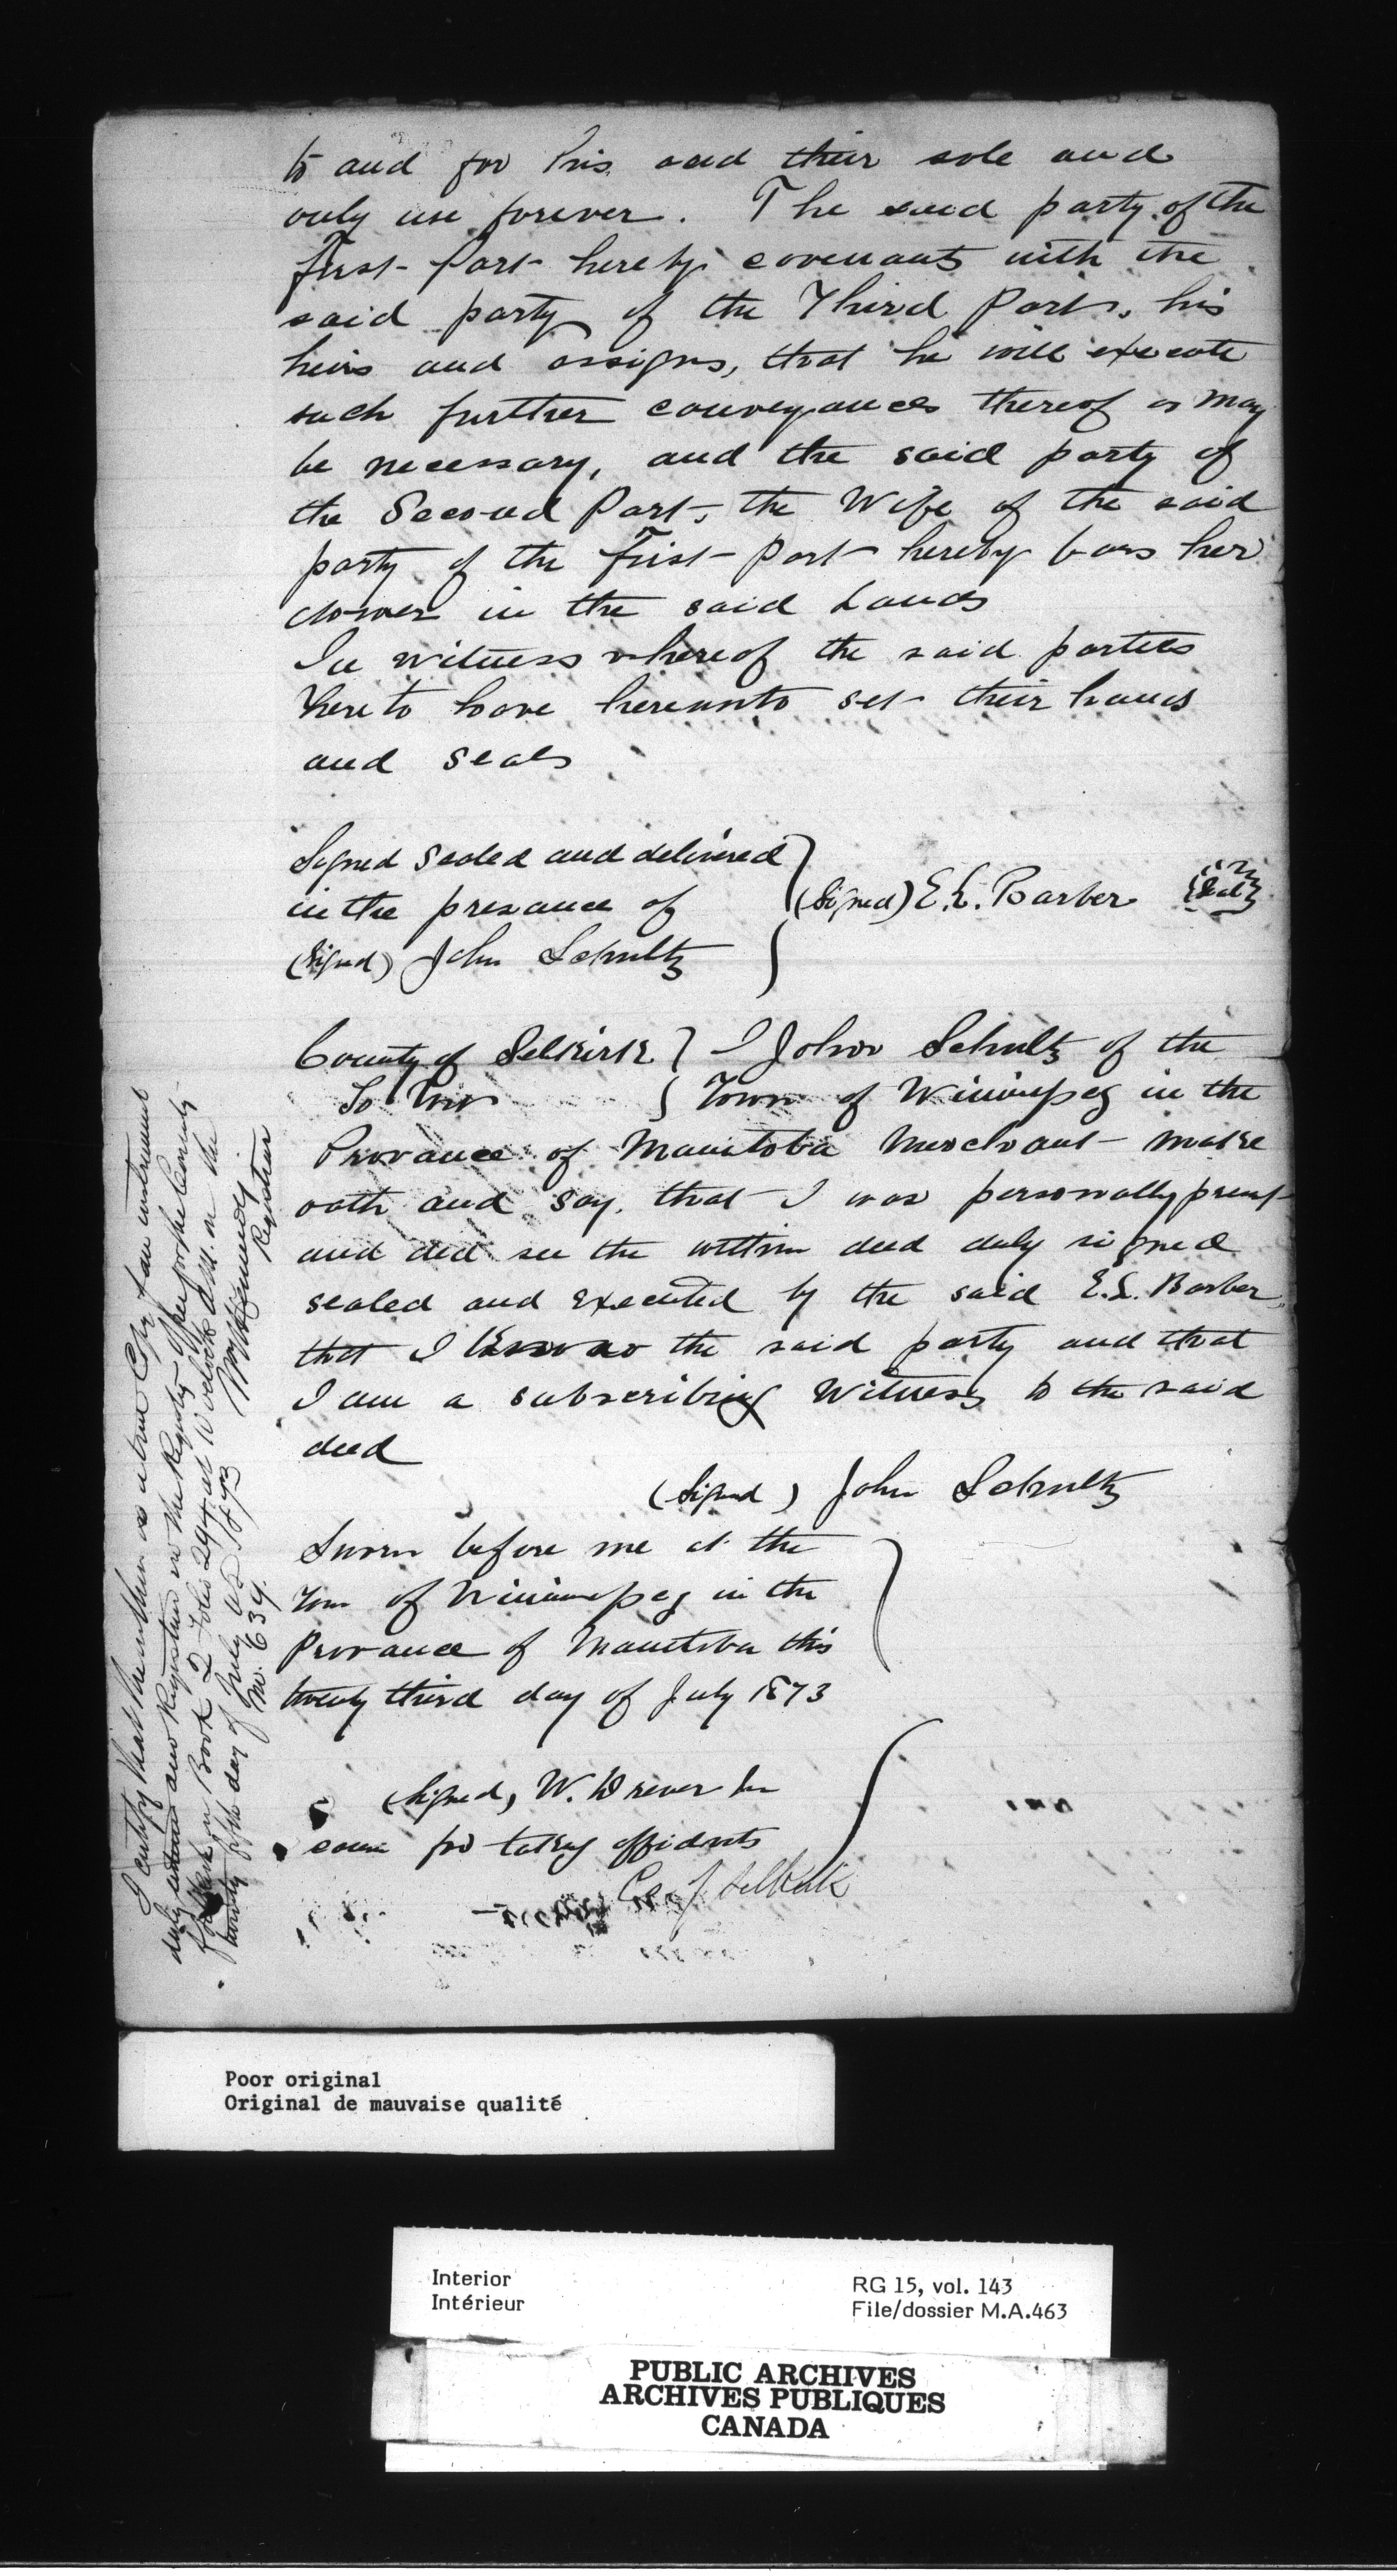 to and for his and their sole and
only use forever. The said party of the
First Part hereby covenants with the
said party of the Third Part, his
heirs and assigns, that he will execute
such further conveyances thereof as may
be necessary, and the said party of
the Second Part, the Wife of the said
party of the First Part hereby bars her
dower in the said Lands
In witness whereof the said parties
hereto have hereunto set their hands
and seals
Signed sealed and delivered
in the presance of
(Signed) E.L. Barber (Seal)
(Signed) John Schultz
County of Selkirk } I John Schultz of the
To Wit } Town of Winnipeg in the
Provance of Manitoba Merchant make
oath and say, that I was personally present
and did see the within deed duly signed
sealed and executed by the said E.L. Barber,
that I know the said party and that
I am a subscribing Witness to the said
deed
(Signed) John Schultz
Sworn before me at the
Town of Winnipeg in the
Provance of Manitoba this
twenty third day of July 1873
(Signed, W. Drever Jnr
com for taking affidavits
Co of Selkirk
I certify that the within is a true Copy of an instrument
duly entered and Registered in the Registry office for the County
of Selkirk in Book D Folio 294 at 10 o'clock A.M. on the
twenty fifth day of July AD 1873
No. 639.
Registrar
Poor original
Original de mauvaise qualité
Interior
Intérieur
RG 15, vol. 143
File/dossier M.A.463
PUBLIC ARCHIVES
ARCHIVES PUBLIQUES
CANADA